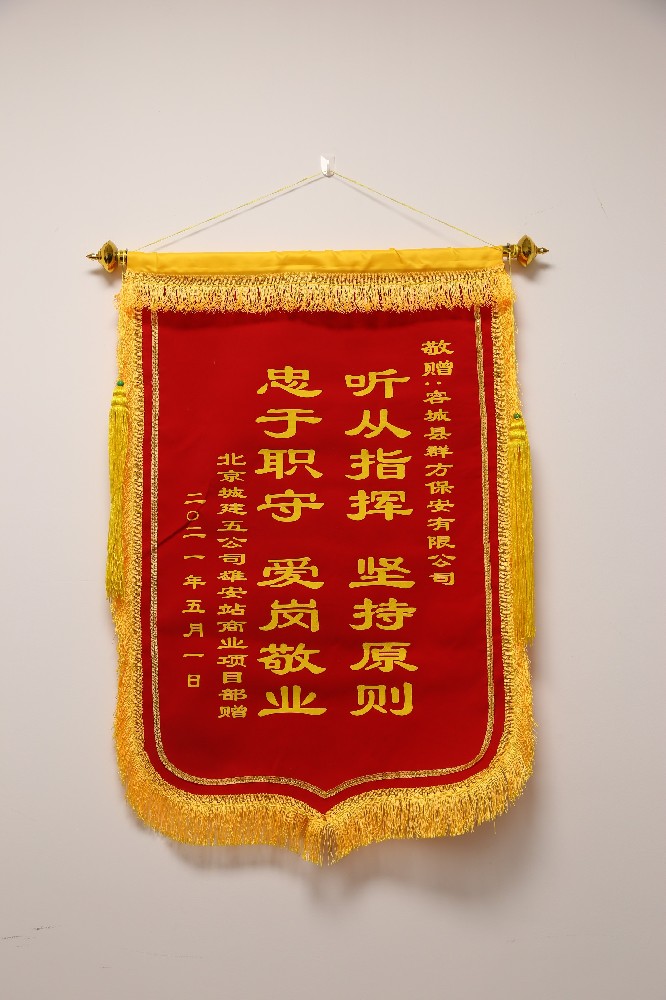 敬赠：容城县群方保安有限公司
听从指挥 坚持原则
忠于职守 爱岗敬业
北京城建五公司雄安站商业项目部赠
二〇二一年五月一日